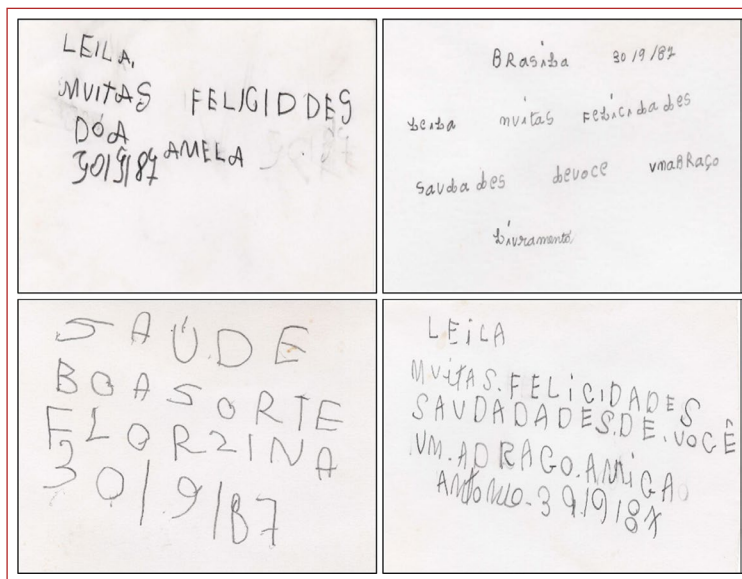 LEILA.
MVITAS FELIGIDDES
DOA AMELA
30/9/87
BRasiba 30/9/87
Leiba mvitas FebiciDaDes
SavDaDes Devoce vmaBRaço
Livramento
SAÚ.DE
BOASORTE
FLORZINA
30/9/87
LEiLA
MViTAS.FELiCIDADES
SAVDADADES.DE.VOCÊ
VM.ADRAGO.AMiGA
ANTONIO-39.9/87